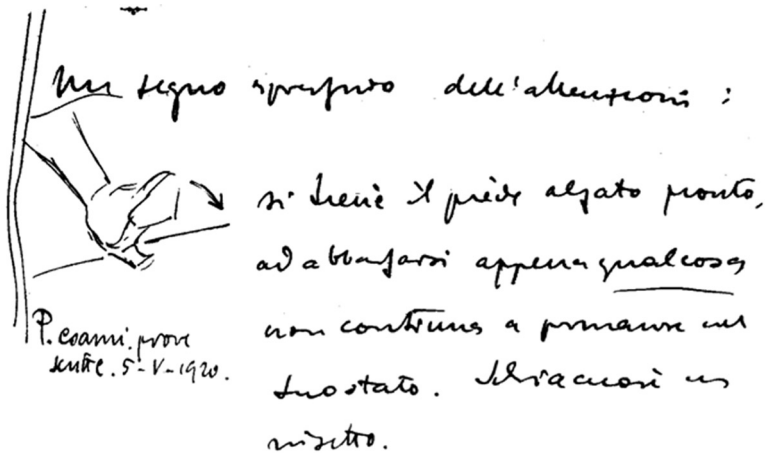 Un segno dell'attenzione :
si tiene il piede alzato pronto,
ad abbassarsi appena qualcosa
non continua a rimanere nel
suo stato. un
P. esami. prove
scritte. 5-V-1920.